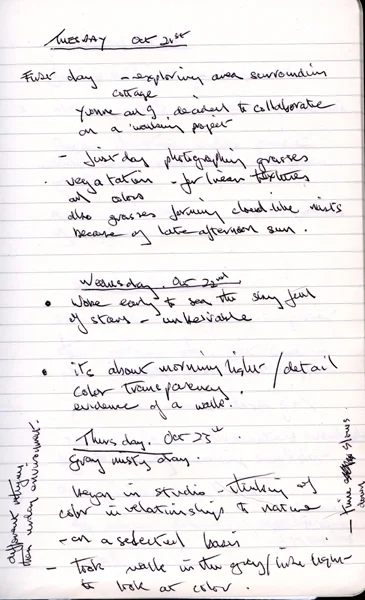 TUESDAY Oct 21st
First day - exploring area surrounding
cottage
Yvonne and I decided to collaborate
on a 'walking project'
- first day photographing grasses
vegetation - for linear textures
and colors
also grasses forming cloud-like mists
because of late afternoon sun.
Wednesday. Oct 22nd
• Woke early to see the sky full
of stars - unbelievable
• it's about morning light / detail
color transparency.
evidence of a walk.
Thursday. Oct 23rd
Gray misty day.
began in studio - thinking of
color in relationship to nature
- on a selected basis
- took walk in the gray/ light
to look at color.
different
than urban environment.
- Time slows
down